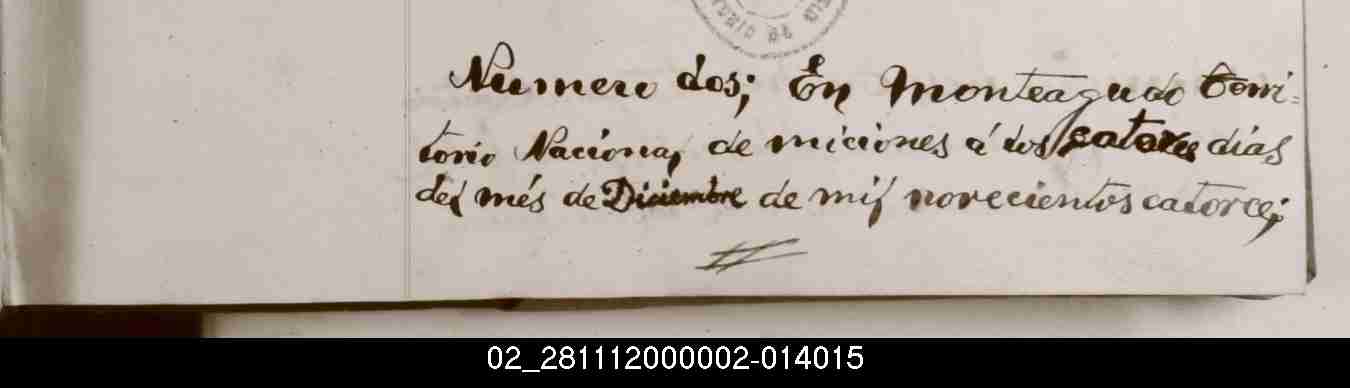 Numero dos; En Monteagudo Terri=
torio Nacional de miciones á los catorce días
del més de Diciembre de mil novecientos catorce;
02_281112000002-014015